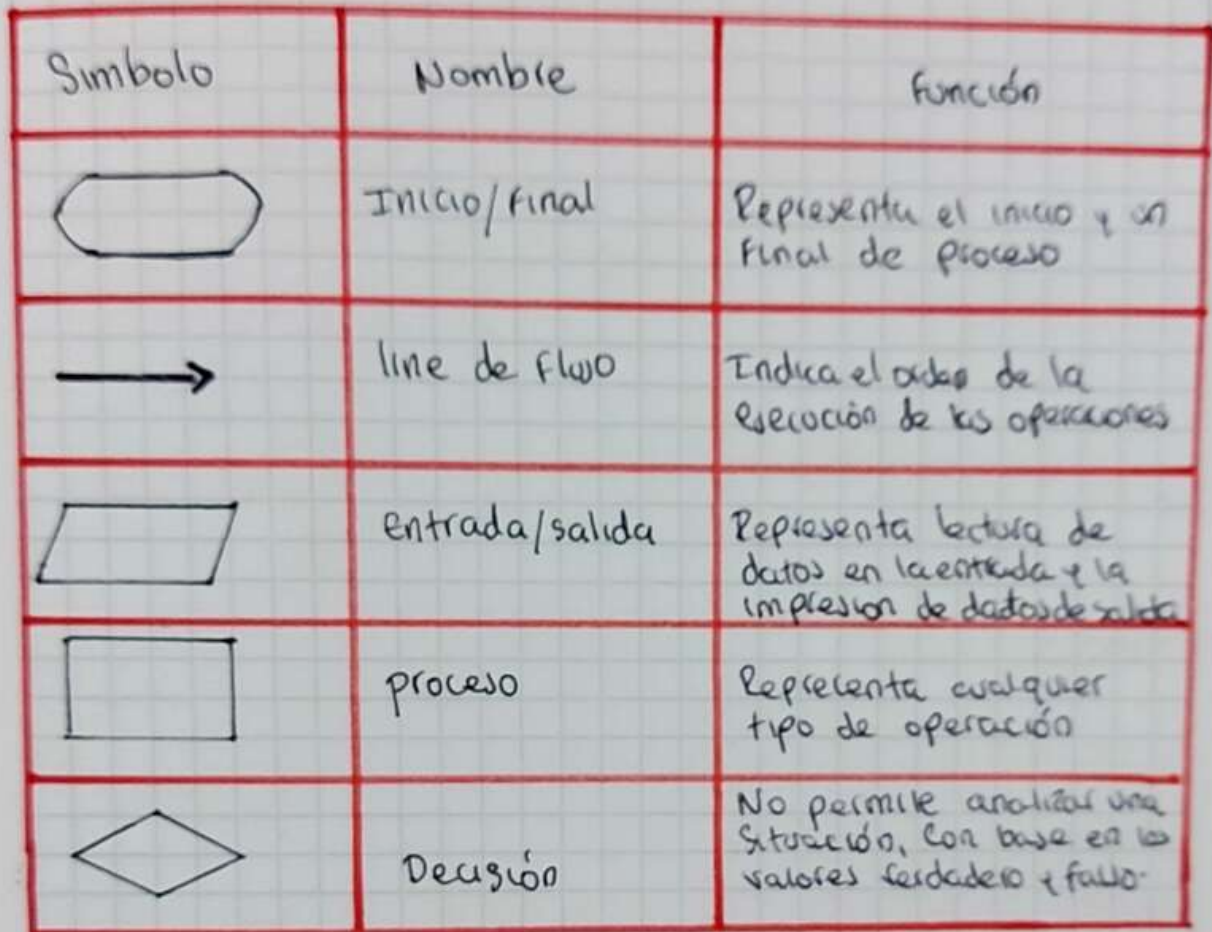 Simbolo
Nombre
función
Inicio/Final
Representa el inicio y un
Final de proceso
line de flujo
Indica el orden de la
esecución de las operaciones
entrada/salida
Representa lectura de
datos en la entrada y la
impresion de dadtos de salida
proceso
Reprecenta cualquier
tipo de operación
Decisión
No permite analizar una
Situación, Con base en los
valores ferdadero y falso.